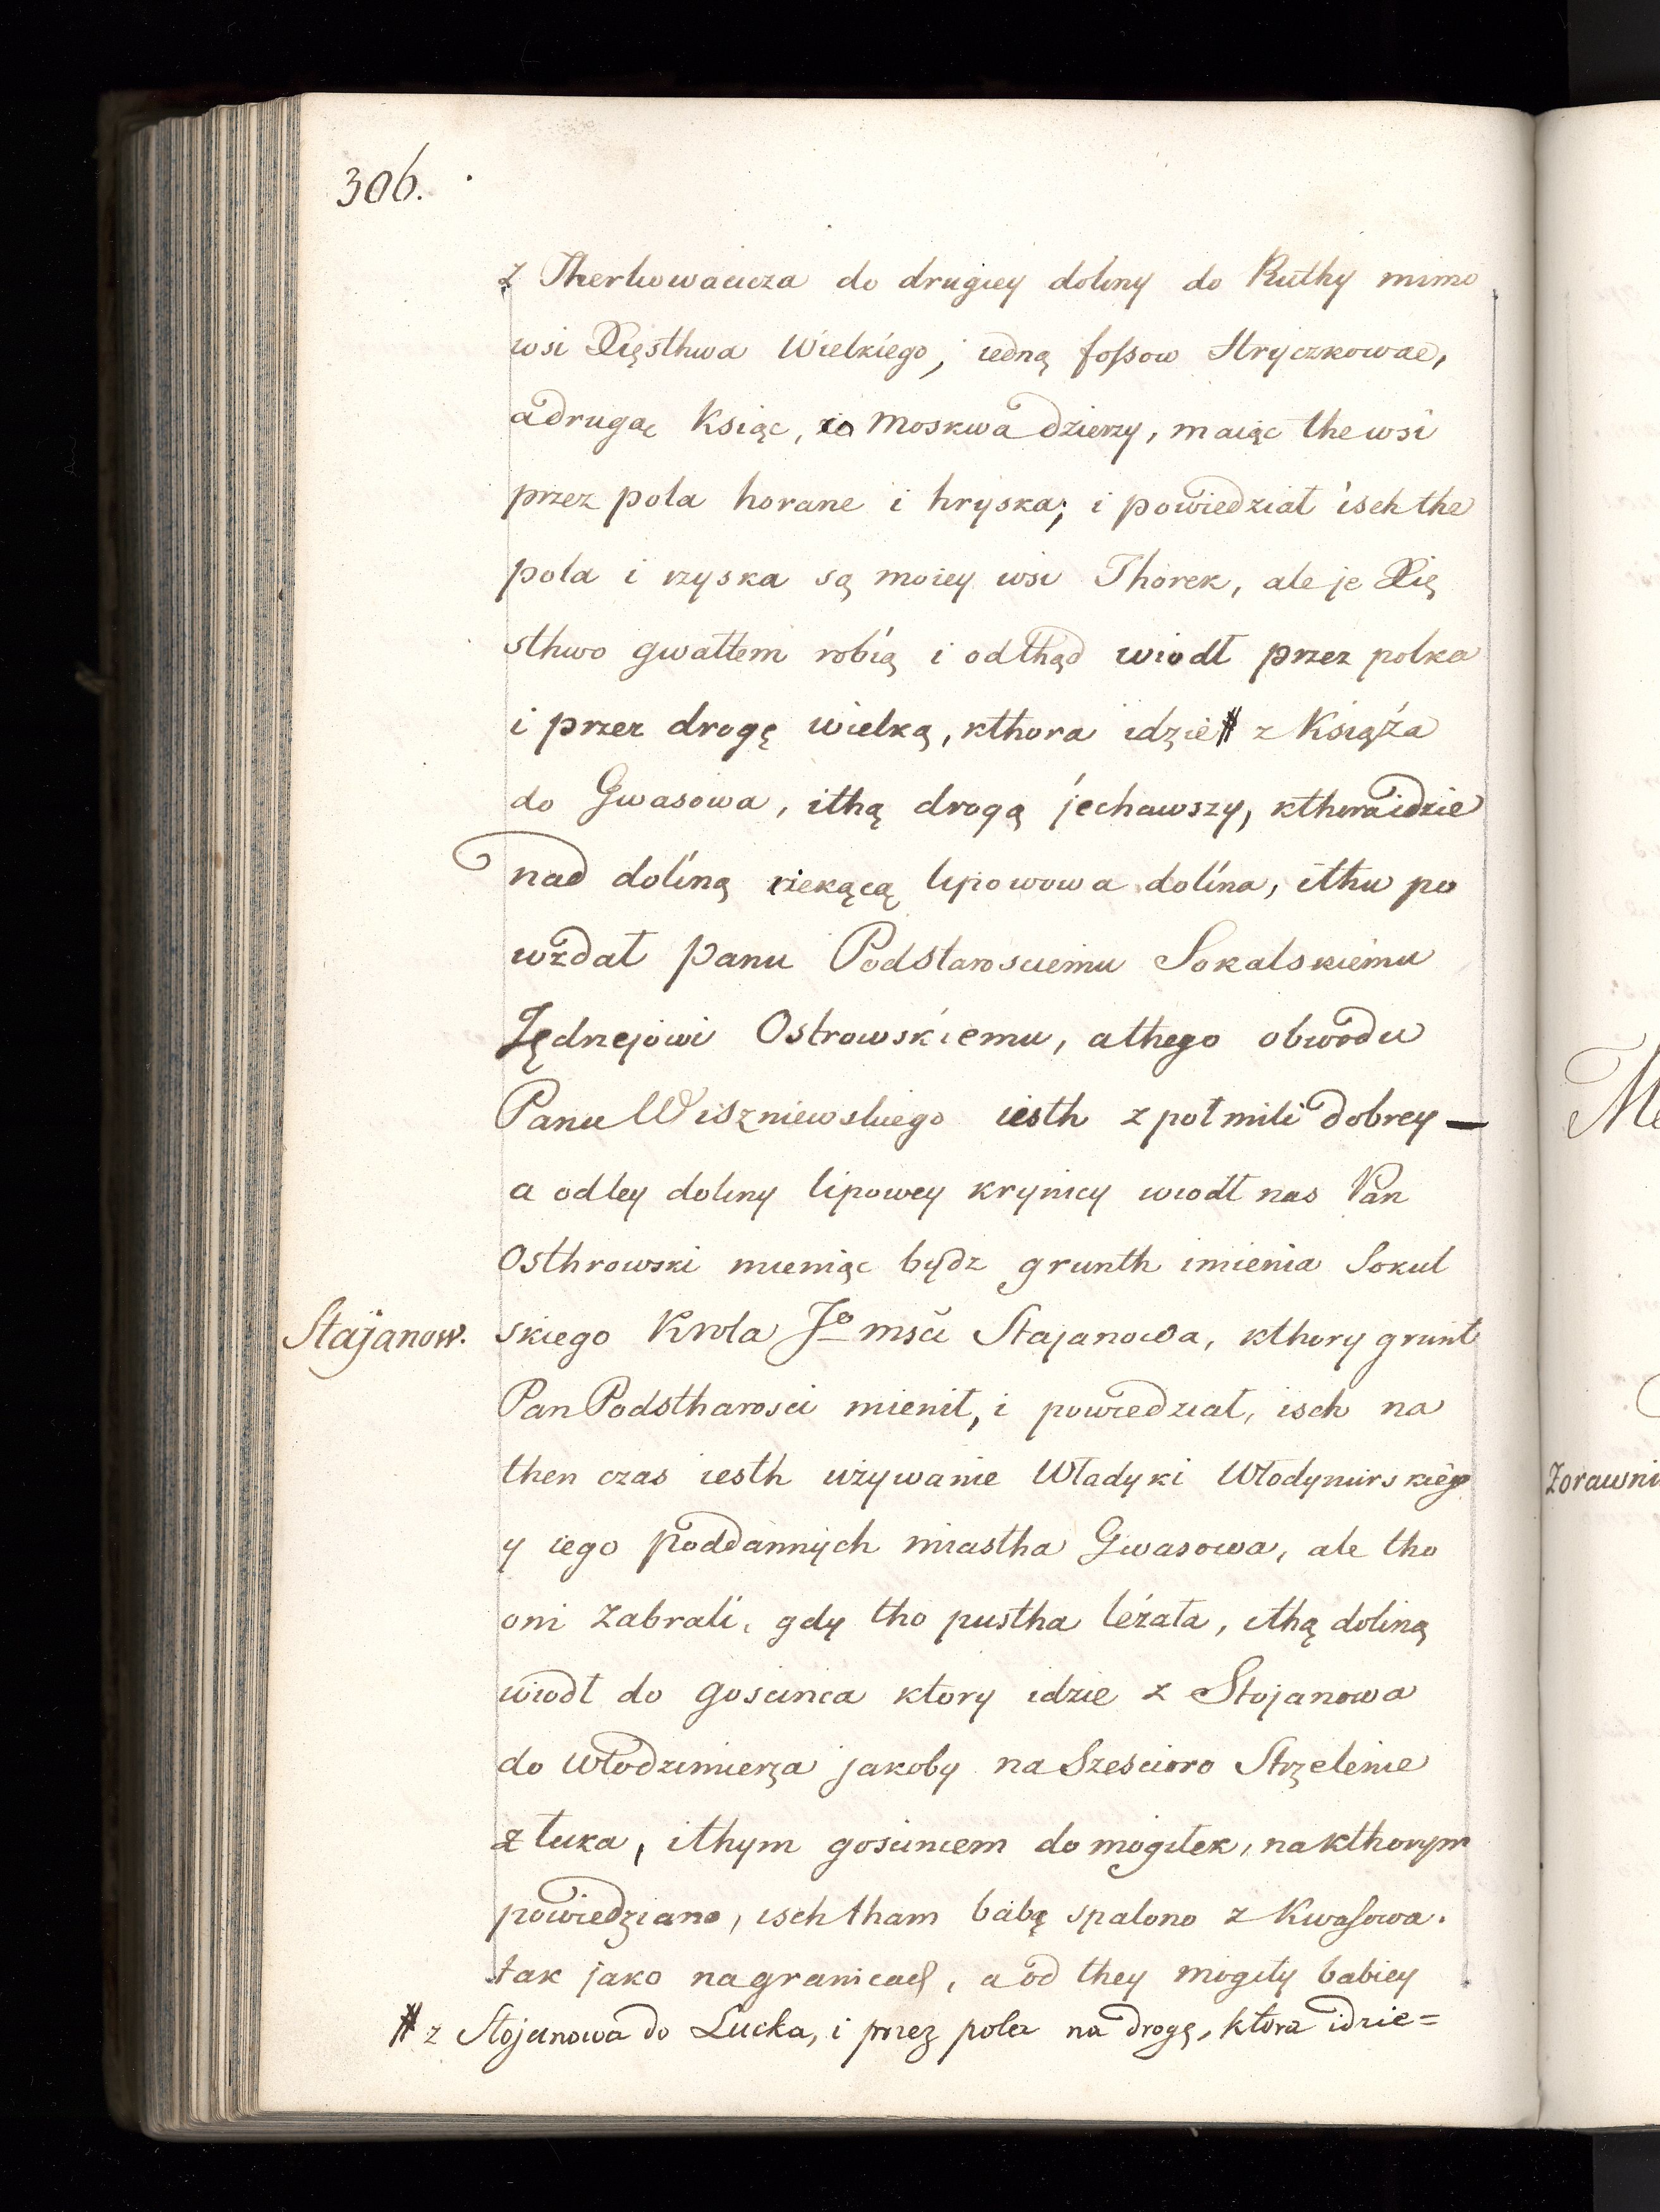 306.
z Therkowaucza do drugiey doliny do Ruthy mimo
wsi Xięsthwa Wielkiego, iedną fossow Stryczkowae,
a drugąę Książ, co Moskwa dzierzy, maiąc the wsi
przez pola horane i hryska; i powiedział isch the
pola i rzyska są moiey wsi Thorek, ale je Xię
sthwo gwałtem robią i odthąd wiodł przez polka
i przez drogę wielką, kthora idzie # z Książa
do Gwasowa, ithą drogą jechawszy, kthora idzie
nad doliną rzekącą lipowowa dolina, ithu po
wzdał panu Podstarosciemu Sokalskiemu
Jędrzejowi Ostrowskiemu, a thego obwodu
Panu Wiszniewskiego iesth z poł mili dobrey —
a odley doliny lipowey krynicy wiodł nas Pan
Osthrowski mieniąc bydz grunth imienia Sokal
Stajanow.
skiego Krola Jo mści Stajanowa, kthory grunt
Pan Podstharosci mienił, i powiedział, isch na
then czas iesth używanie Władyki Włodymirskiego
y iego poddannych miastha Gwasowa, ale tho
oni zabrali, gdy tho pustha leżała, ithą doliną
wiodł do goscinca ktory idzie z Stojanowa
do Włodzimierza jakoby na Szescioro Strzelenie
z łuka, ithym goscincem do mogiłek, na kthorym
powiedziano, isch tham babę spalono z Kwasowa.
tak jako na granicach, a od they mogiły babiey
# z Stojanowa do Łucka, i przez pola na drogę, ktora idzie=
Me
Zorawni